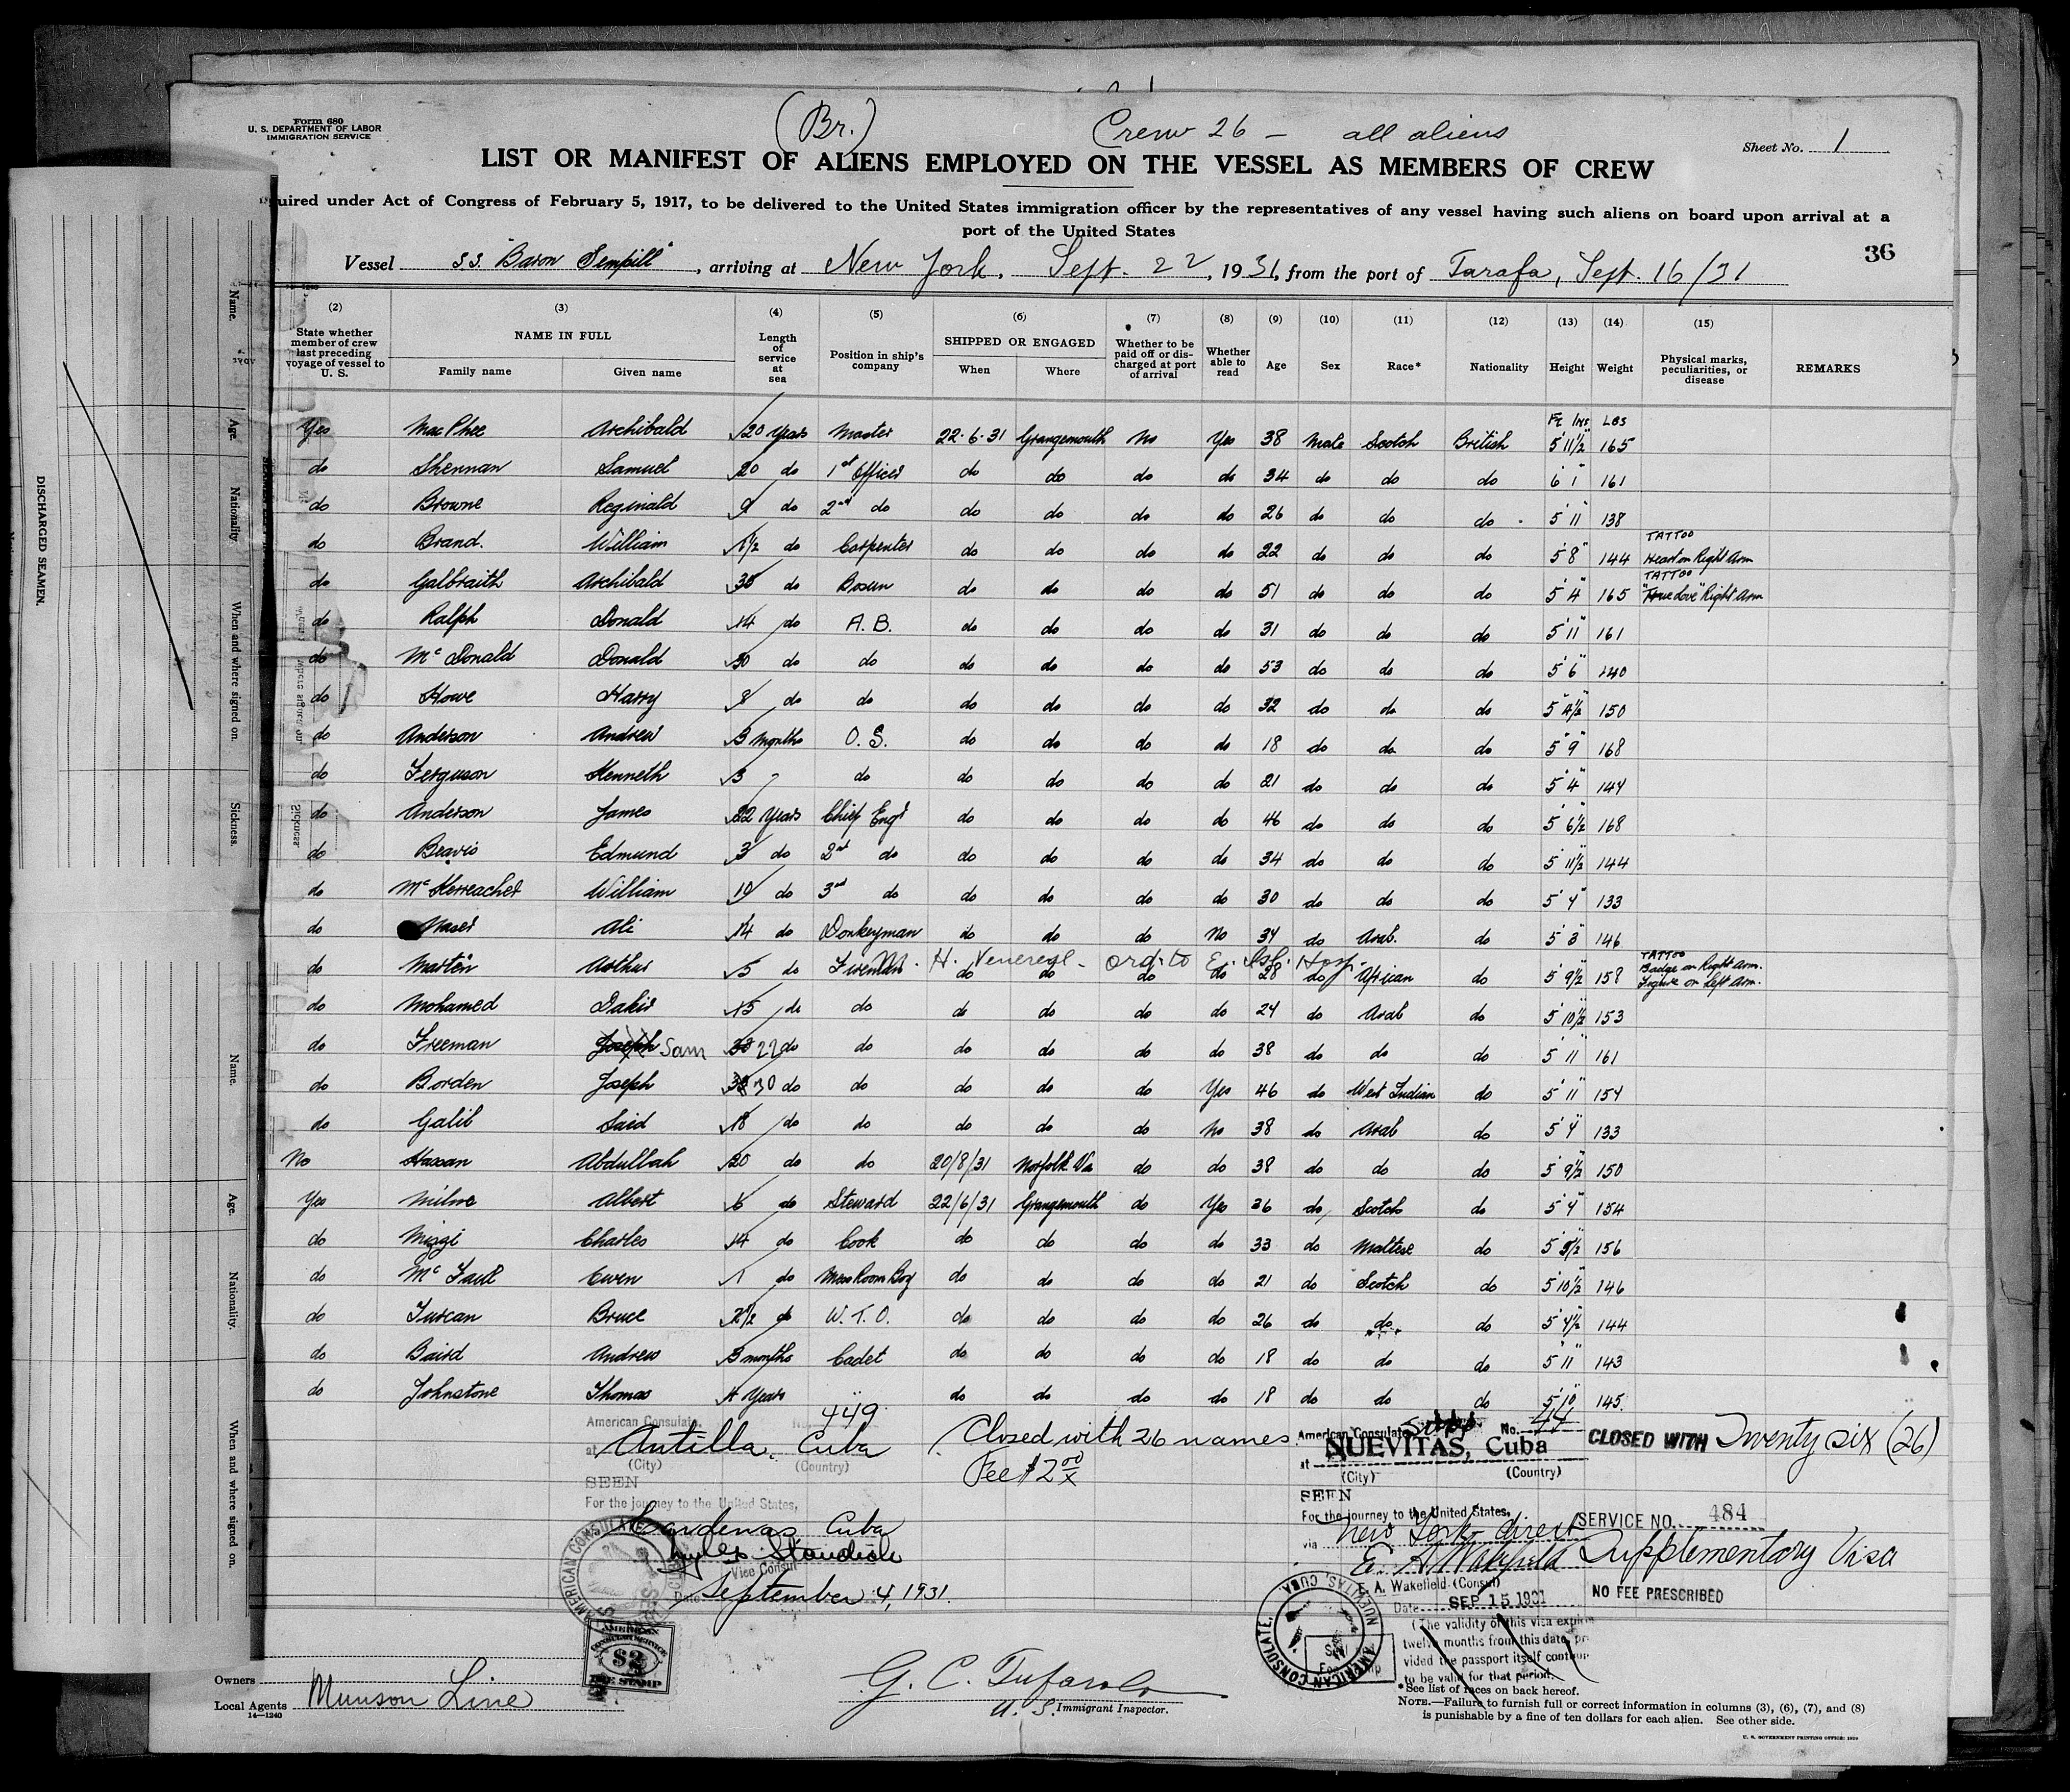 Form 680
U. S. DEPARTMENT OF LABOR
IMMIGRATION SERVICE
(Br.) Crew 26 — all aliens
Sheet No. 1
LIST OR MANIFEST OF ALIENS EMPLOYED ON THE VESSEL AS MEMBERS OF CREW
uired under Act of Congress of February 5, 1917, to be delivered to the United States immigration officer by the representatives of any vessel having such aliens on board upon arrival at a
port of the United States
36
Vessel S.S. "Baron Sempill", arriving at New York, Sept. 22, 1931, from the port of Tarafa, Sept. 16/31
(2) (3) (4) (5) (6) (7) (8) (9) (10) (11) (12) (13) (14) (15)
State whether member of crew last preceding voyage of vessel to U. S. NAME IN FULL Family name Given name Length of service at sea Position in ship's company SHIPPED OR ENGAGED When Where Whether to be paid off or discharged at port of arrival Whether able to read Age Sex Race* Nationality Height Weight Physical marks, peculiarities, or disease REMARKS
Ft Ins Lbs
Yes MacPhee Archibald 20 Years Master 22.6.31 Grangemouth No Yes 38 Male Scotch British 5' 11½" 165
do Shennan Samuel 20 do 1st Officer do do do do 34 do do do 6' 1" 161
do Browne Reginald 9 do 2nd do do do do do 26 do do do 5' 11" 138
do Brand. William 1½ do Carpenter do do do do 22 do do do 5' 8" 144 TATTOO Heart on Right Arm
do Galbraith Archibald 35 do Bosun do do do do 51 do do do 5' 4" 165 TATTOO "True Love" Right Arm
do Ralph Donald 14 do A. B. do do do do 31 do do do 5' 11" 161
do McDonald Donald 30 do do do do do do 53 do do do 5' 6" 140
do Howe Harry 8 do do do do do do 32 do do do 5' 4½" 150
do Anderson Andrew 3 Months O. S. do do do do 18 do do do 5' 9" 168
do Ferguson Kenneth 3 " do do do do do 21 do do do 5' 4" 144
do Anderson James 22 Years Chief Engr do do do do 46 do do do 5' 6½" 168
do Beavis Edmund 3 do 2nd do do do do do 34 do do do 5' 11½" 144
do McKerreacher William 10 do 3rd do do do do do 30 do do do 5' 4" 133
do Naser Ali 14 do Donkeyman do do do No 34 do Arab. do 5' 3" 146
do Martin Arthur 5 do Fireman do do do do 28 do African do 5' 9½" 158 TATTOO Badge on Right Arm. Figure on Left Arm.
H. Venereal - ord. to E. Isl. Hosp.
do Mohamed Dakir 15 do do do do do do 24 do Arab do 5' 10½" 153
do Freeman Joseph Sam 30 22 do do do do do do 38 do do do 5' 11" 161
do Borden Joseph 30 do do do do do Yes 46 do West Indian do 5' 11" 154
do Galil Said 18 do do do do do No 38 do Arab do 5' 4" 133
No Hassan Abdullah 20 do do 20/8/31 Norfolk Va do do 38 do do do 5' 9½" 150
Yes Milne Albert 6 do Steward 22/6/31 Grangemouth do Yes 36 do Scotch do 5' 4" 154
do Mizzi Charles 14 do Cook do do do do 33 do Maltese do 5' 5½" 156
do McFaul Ewen 1 do Mess Room Boy do do do do 21 do Scotch do 5' 10½" 146
do Turcan Bruce 2½ do W. T. O. do do do do 26 do do do 5' 4½" 144
do Baird Andrew 3 months Cadet do do do do 18 do do do 5' 11" 143
do Johnstone Thomas 4 Years " do do do do 18 do do do 5' 10" 145.
American Consulate, No. 449
at Antilla, Cuba
(City) (Country)
SEEN
For the journey to the United States,
Cardenas Cuba
Myles Standish
Vice Consul
Date September 4, 1931.
Closed with 26 names.
Fee $2.00
American Consulate No. 44
at NUEVITAS, Cuba
(City) (Country)
SEEN
For the journey to the United States,
via New York direct
E. A. Wakefield
E. A. Wakefield (Consul)
Date SEP 15 1931
(The validity of this visa expires
twelve months from this date, pro-
vided the passport itself continues
to be valid for that period.
CLOSED WITH Twenty six (26)
SERVICE NO. 484
Supplementary Visa
NO FEE PRESCRIBED
AMERICAN CONSULATE
AMERICAN CONSULATE, NUEVITAS, CUBA
AMERICAN CONSULAR SERVICE $2 FEE STAMP
Owners
Local Agents Munson Line
14—1240
G. C. Tufarolo
U. S. Immigrant Inspector.
*See list of races on back hereof.
NOTE.—Failure to furnish full or correct information in columns (3), (6), (7), and (8)
is punishable by a fine of ten dollars for each alien. See other side.
U. S. GOVERNMENT PRINTING OFFICE: 1929
DISCHARGED SEAMEN.
Name.
Age.
Nationality.
When and where signed on.
Sickness.
Name.
Age.
Nationality.
When and where signed on.